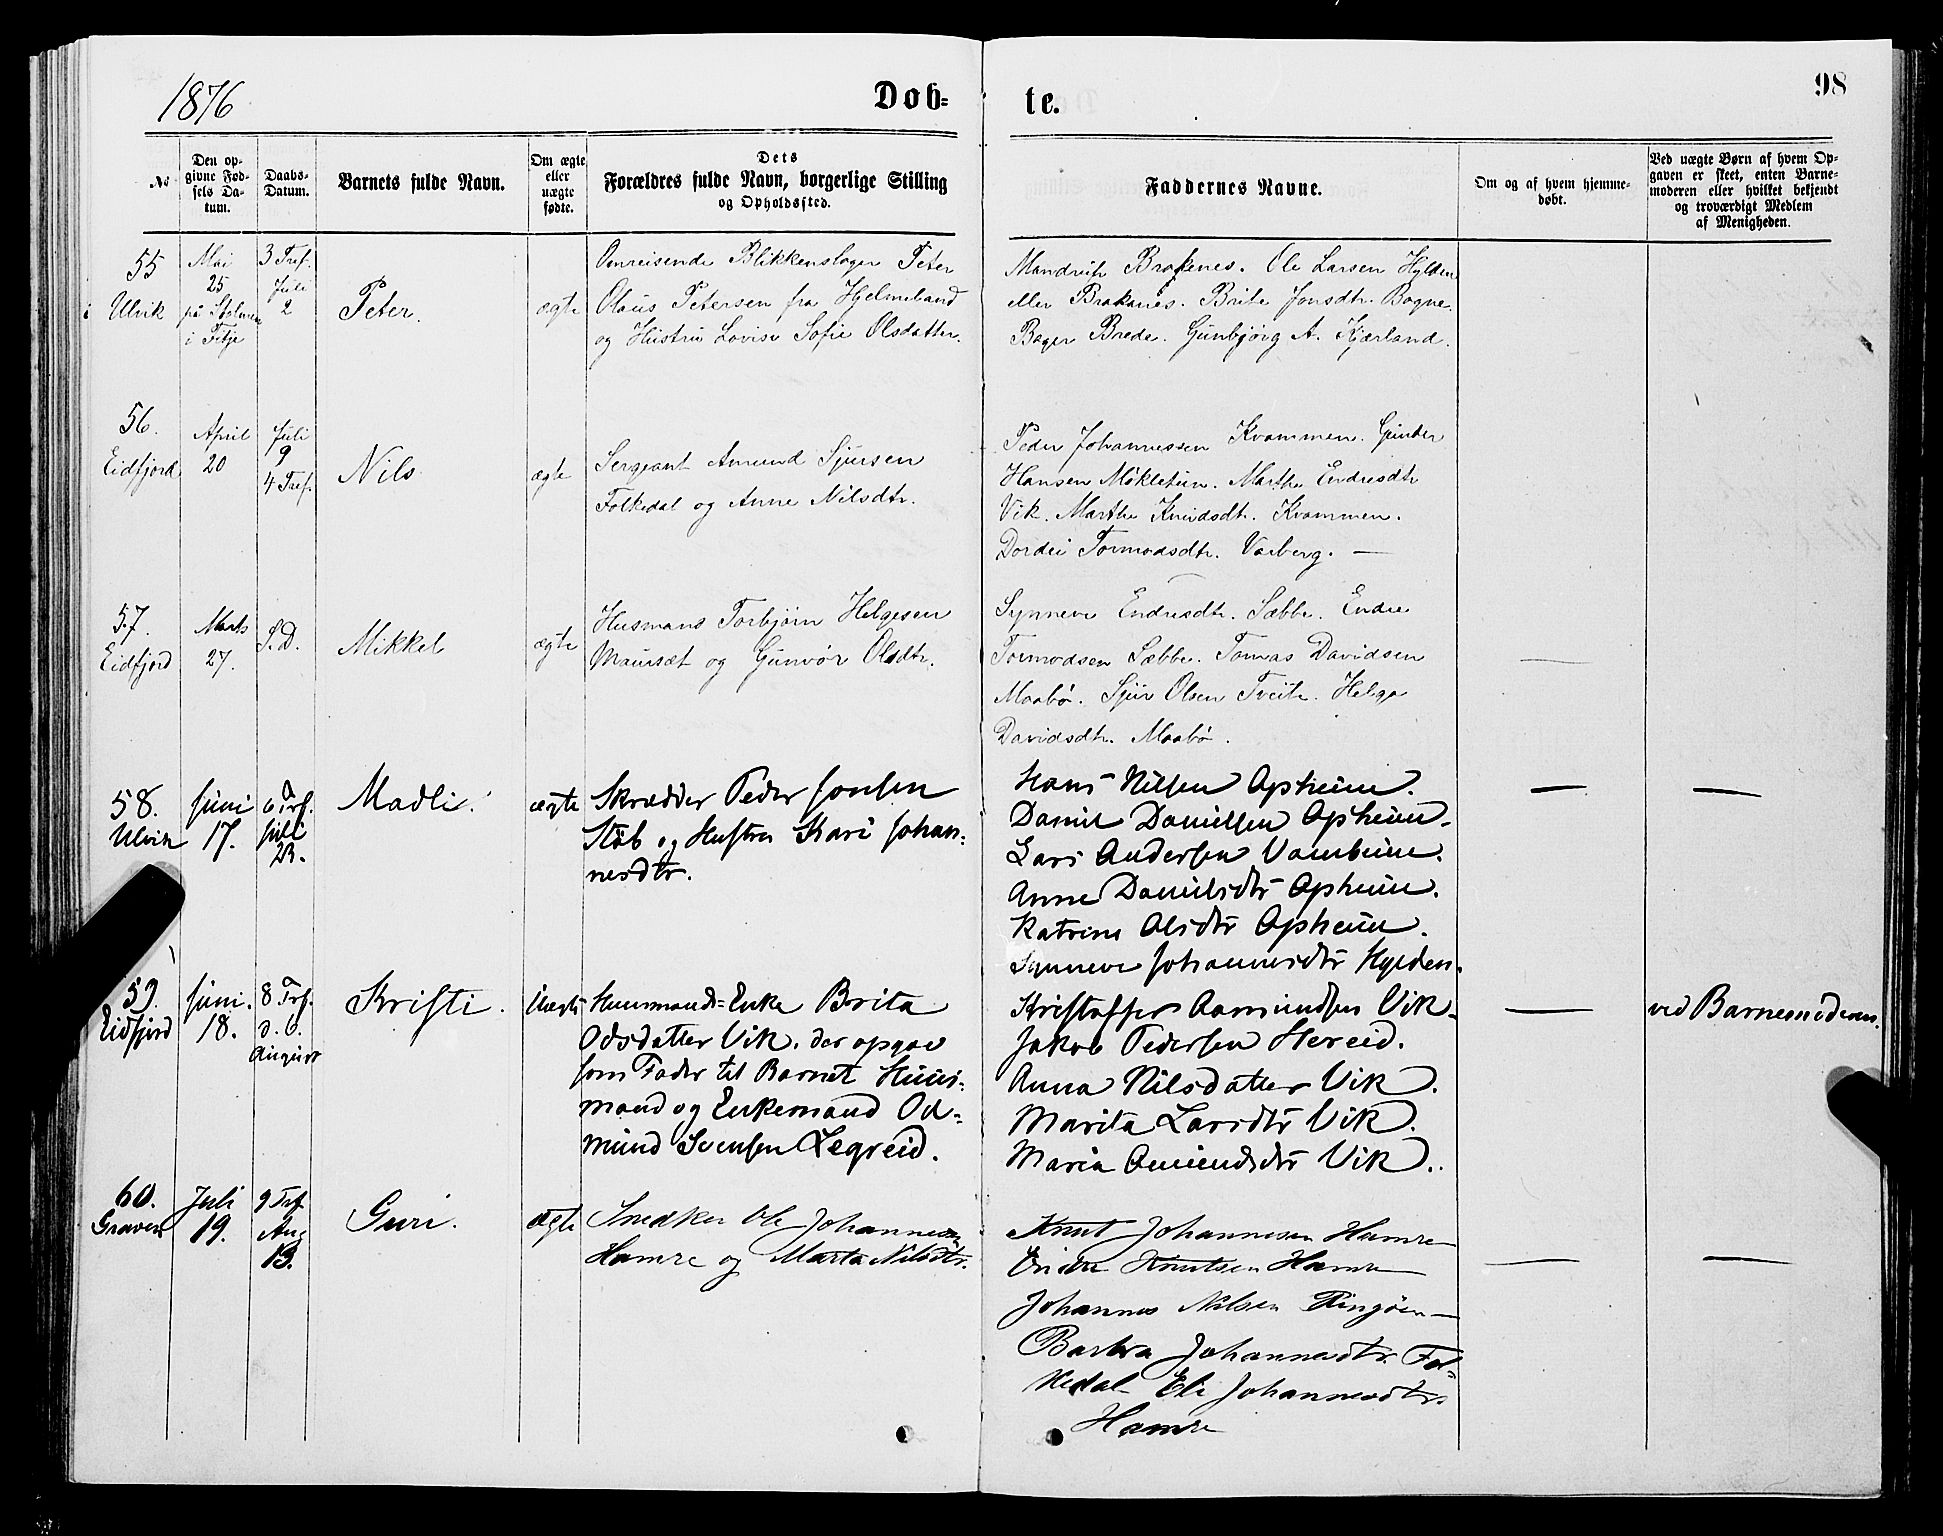 1876
Døb-
te.
98
No
Den op-
givne Fød-
sels Da-
tum.
Daabs-
Datum.
Barnets fulde Navn.
Om ægte
eller
uægte
fødte.
Dets
Forældres fulde Navn, borgerlige Stilling
og Opholdssted.
Faddernes Navne.
Om og af hvem hjemme-
døbt.
Ved uægte Børn af hvem Op-
gaven er skeet, enten Barne-
moderen eller hvilket bekjendt
og troværdigt Medlem
af Menigheden.
55
i Ulvik
Mai
25
på Stolmen
i Fitje
3 Tref.
Juli
2
Peter.
ægte
Omreisende Blikkenslager Peter
Olaus Petersen fra Hjelmeland
og Hustru Lovise Sofie Olsdatter.
Brakenes. Ole Larsen Hylden
eller Brakanes. Brite Jonsdtr. Bagne.
Bager Brede. Gunbjørg A. Kjærland.
56.
Eidfjord
April
20
Juli
9
4 Tref.
Nils
ægte
Sergeant Amund Sjursen
Folkedal og Anne Nilsdtr.
Peder Johannessen Kvammen.
Hansen Møkletun. Marthe Endresdtr
Vik. Marthe Knudsdt. Kvammen.
Dordei Tormodsdtr. Varberg. —
57.
Eidfjord
Marts
27.
S.D.
Mikkel
ægte
Husmans Torbjørn Helgesen
Maursæt og Gunvør Olsdtr.
Synneve Endresdtr. Sæbbe. Endre
Tormodsen Sæbbe. Tomas Davidsen
Maabø. Sjur Olsen Tveite. Helga
Davidsdtr. Maabø.
—
58.
Ulvik
Juni
17.
6 Trf.
Juli
23.
Madli.
ægte
Skrædder Peder Jonsen
Støb og Hustru Kari Johan-
nesdtr.
Hans Nilsen Opheim.
Daniel Danielsen Opheim.
Lars Andersen Vambeim.
Anna Danielsdtr Opheim.
Katrine Olsdtr Opheim.
Synneve Johannesdtr Hylden.
—
—
59.
Eidfjord
Juni.
18.
8 Trf.
d. 6.
August
Kristi.
Uægte
Huusmands-Enke Brita
Odsdatter Vik. der opgav
som Fader til Barnet Huus-
mand og Enkemand Od-
mund Svensen Legreid.
Kristoffer Aamundsen Vik.
Jakob Pedersen Hereid.
Anna Nilsdatter Vik.
Marita Larsdtr Vik.
Maria Amundsdtr Vik.
—
ved Barnemoderen.
60.
Graven
Juli
19.
9 Trf.
Aug
13.
Guri.
ægte
Snedker Ole Johannesen
Hamre og Marta Nilsdtr.
Knut Johannesen Hamre
Knutsen Hamre
Johannes Nilsen Ringøen
Barbra Johannesdtr. Fol-
kedal Eli Johannesdtr.
Hamre
—
—